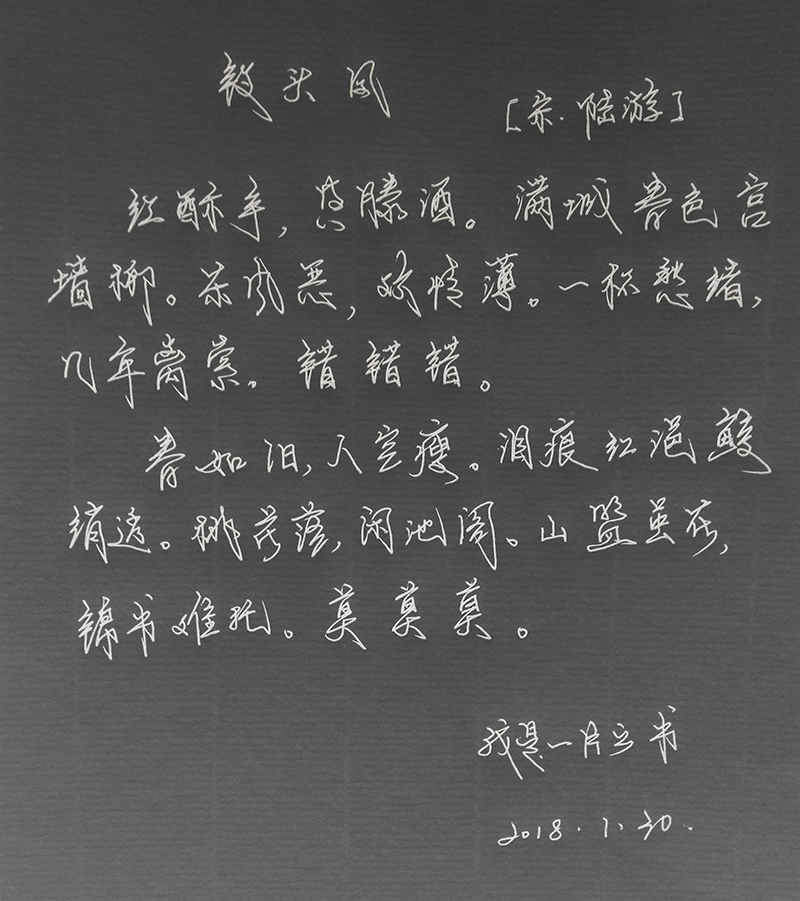 钗头凤
[宋·陆游]
红酥手,黄滕酒。满城春色宫
墙柳。东风恶,欢情薄。一怀愁绪,
几年离索。错错错。
春如旧,人空瘦。泪痕红浥鲛
绡透。桃花落,闲池阁。山盟虽在,
锦书难托。莫莫莫。
我是一片云书
2018.1.30.